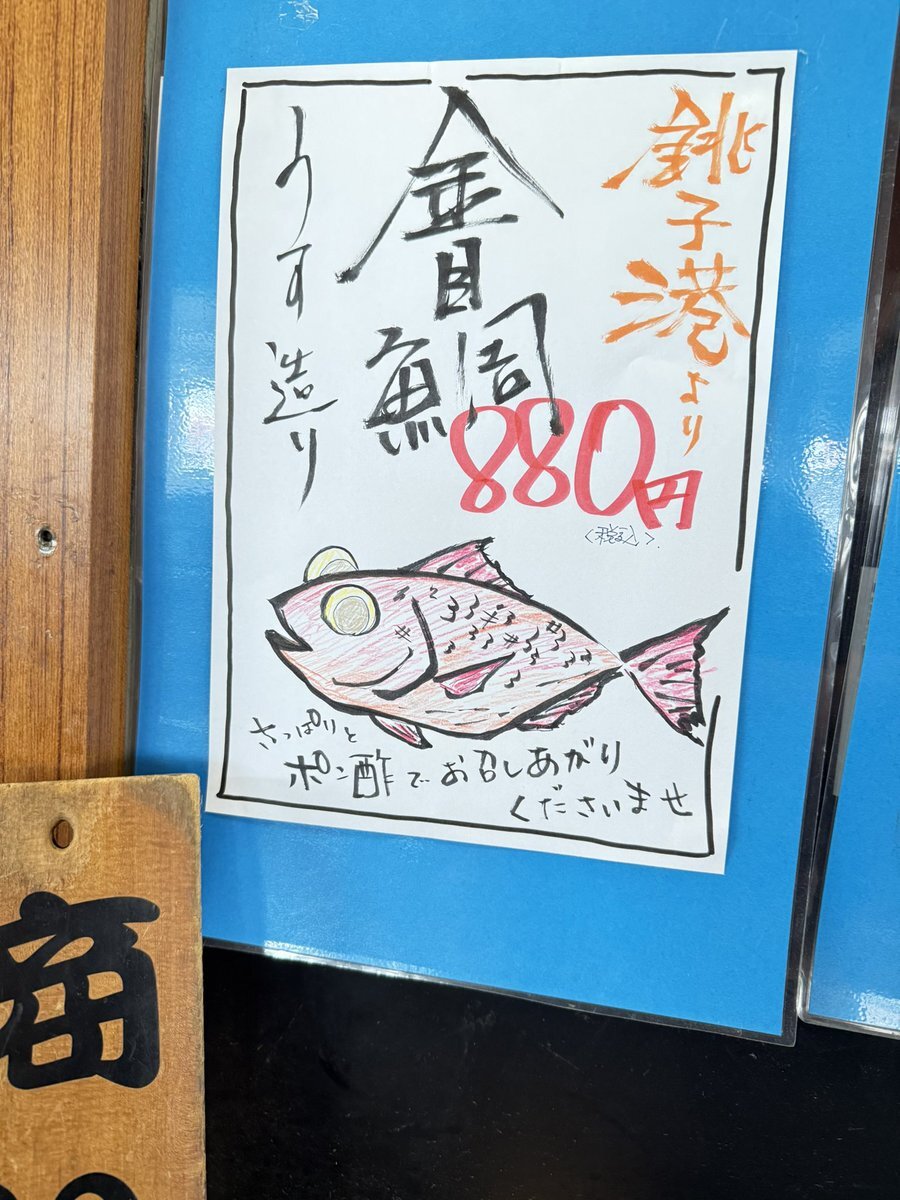 銚子港より
金目鯛
うす造り
880円
<税込>.
さっぱりと
ポン酢でお召しあがり
くださいませ